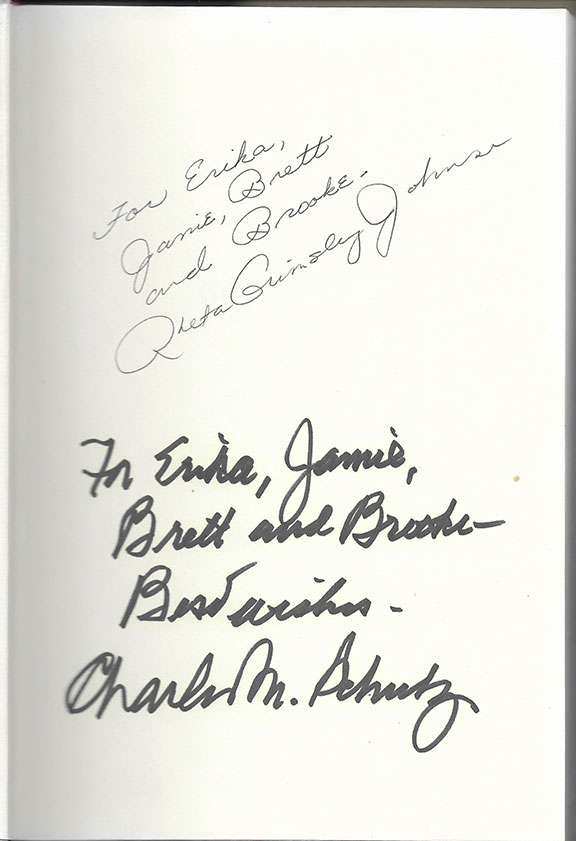 For Erika,
Jamie, Brett
and Brooke.
Rheta Grimsley Johnson
For Erika, Jamie,
Brett and Brooke—
Best wishes -
Charles M. Schulz